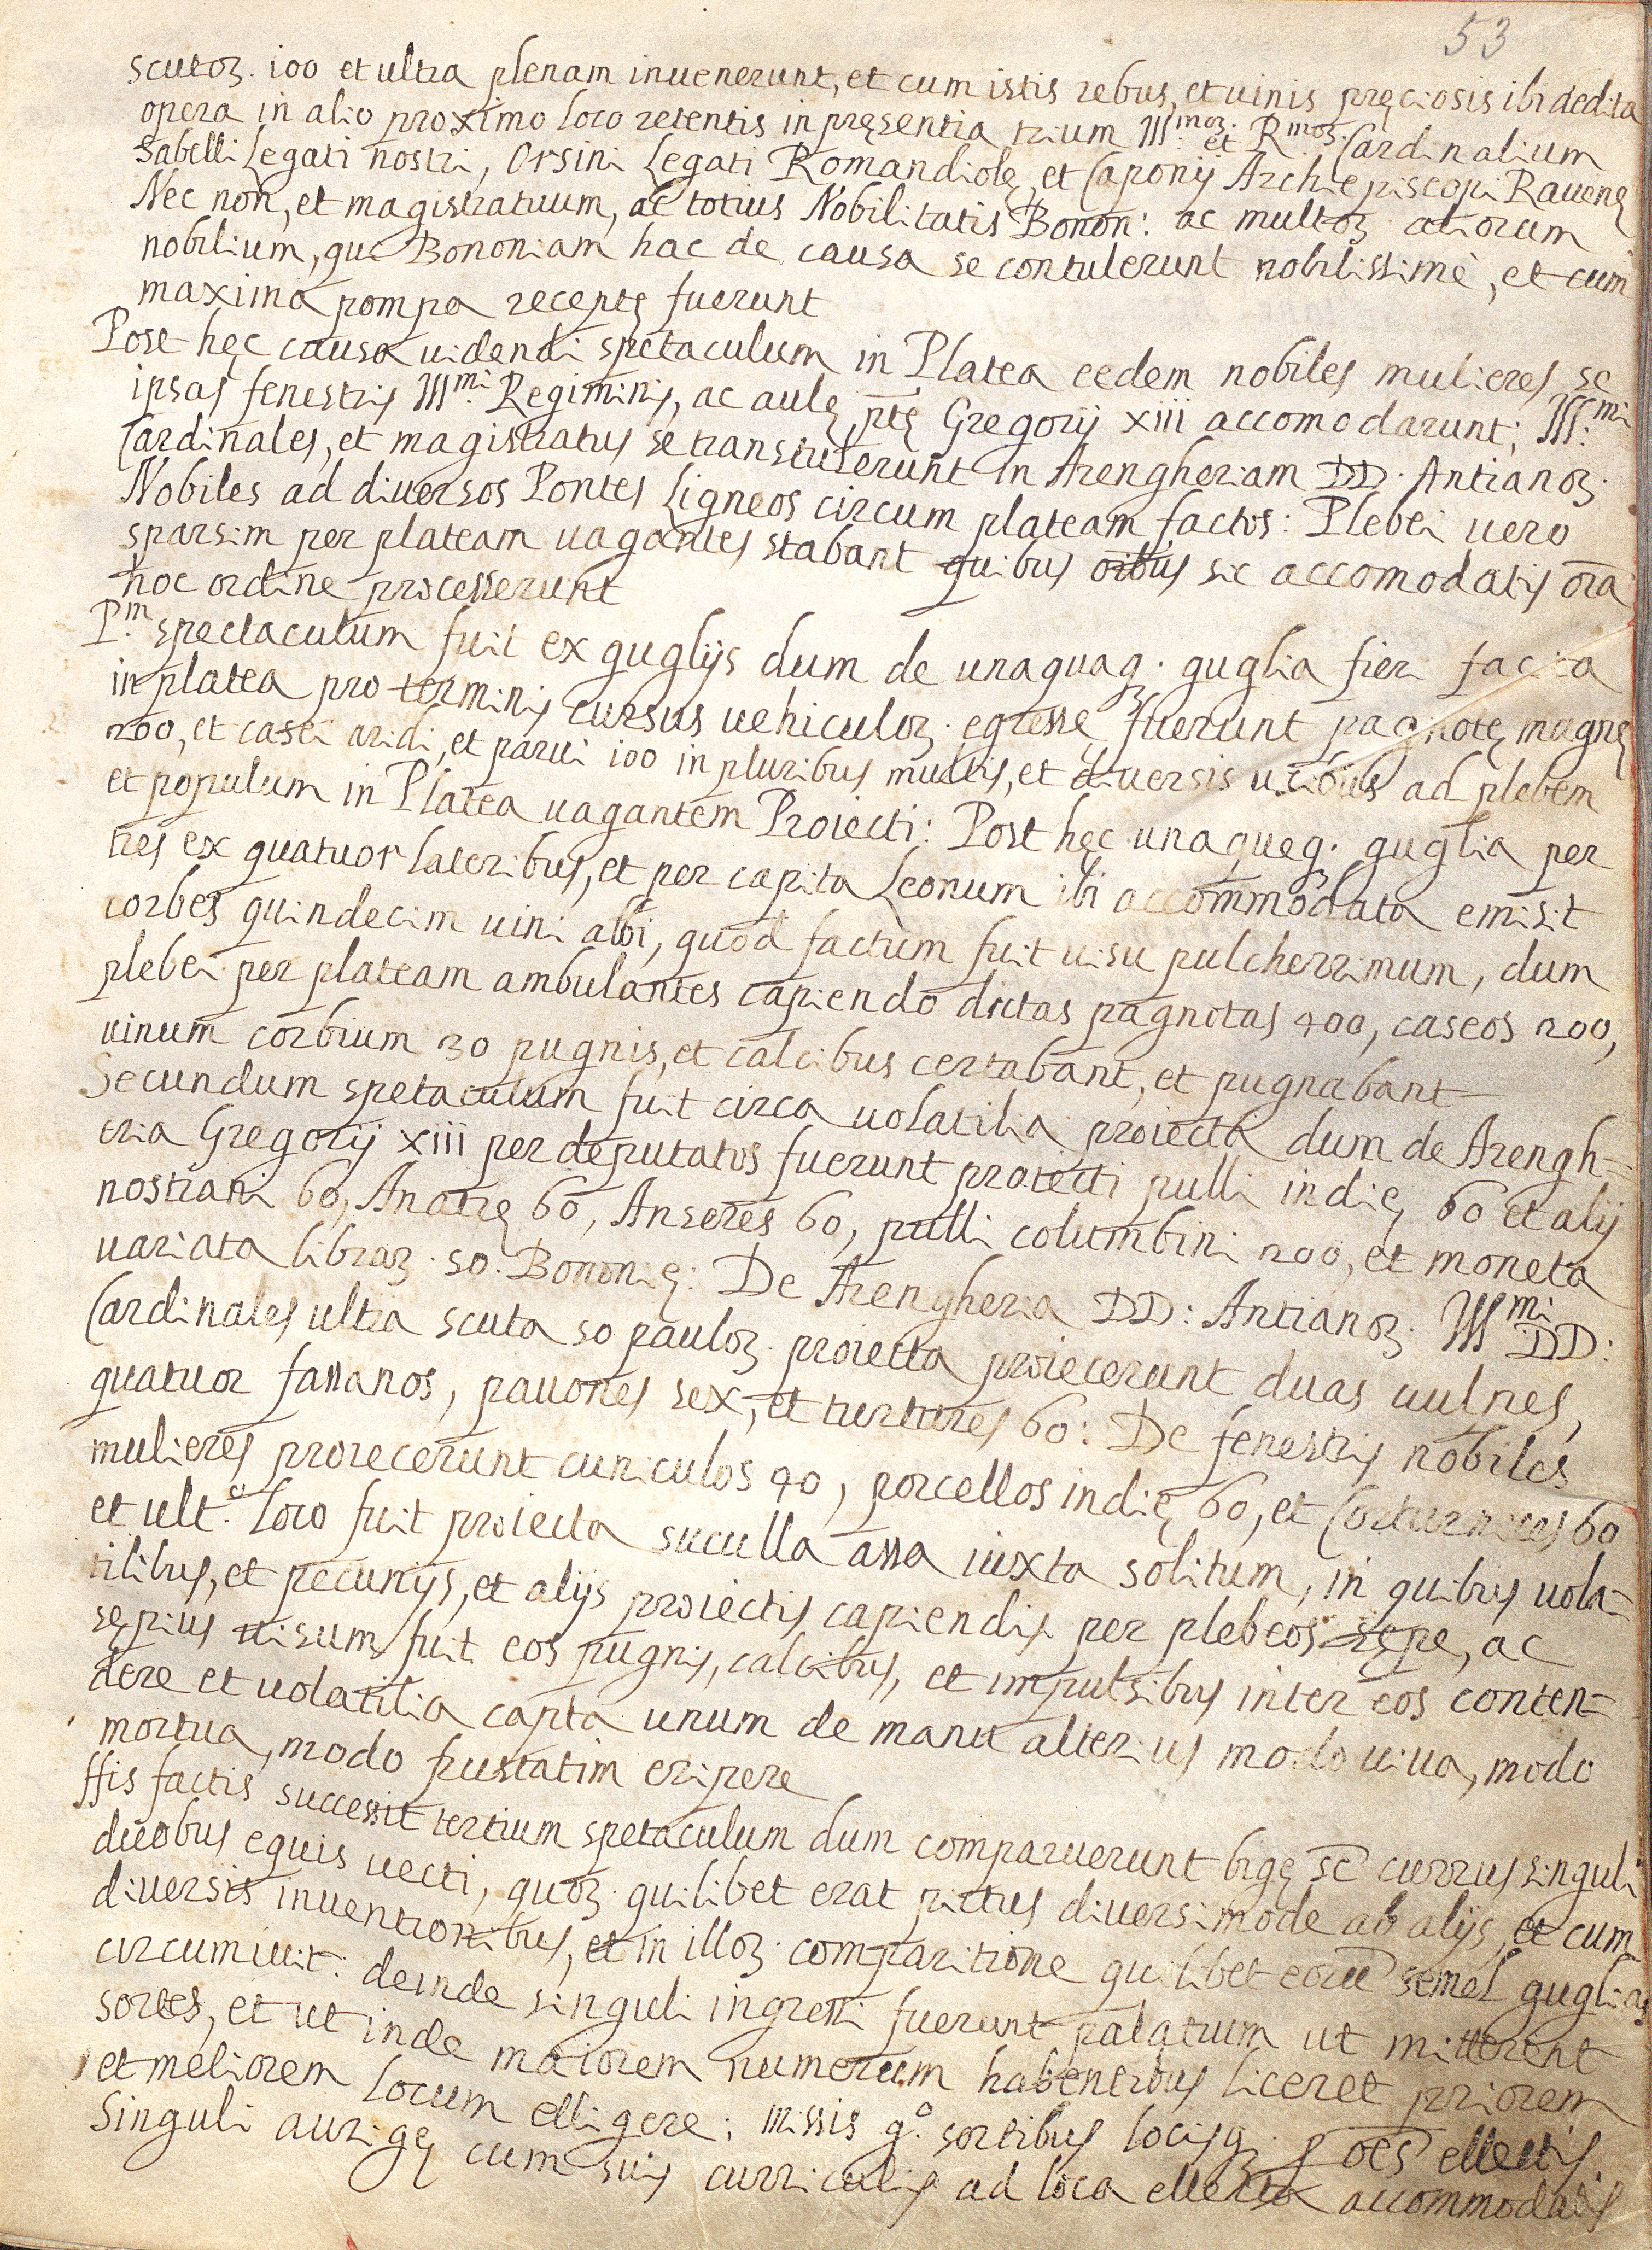 53
scutoꝝ. 100 et ultra plenam inuenerunt, et cum istis rebus, et uinis pręciosis ibi dedita
opera in alio proximo loco retentis in pręsentia trium Ill.moꝝ et R.moꝝ Cardinalium
Sabelli Legati nostri, Orsini Legati Romandiolę, et Caponij Archiepiscopi Rauenę
Nec non, et magistratuum, ac totius Nobilitatis Bonon: ac multoꝝ aliorum
nobilium, qui Bononiam hac de causa se contulerunt nobilissimè, et cum
maxima pompa receptę fuerunt
Post hęc causa uidendi spetaculum in Platea eedem nobiles mulieres se
ipsas fenestris Ill.mi Regiminis, ac aulę ptę Gregorij xiii accomodarunt; Ill.mi
Cardinales, et magistratus se transtulerunt in Arengheriam DD. Antianoꝝ.
Nobiles ad diuersos Pontes Ligneos circum plateam factos: Plebei uero
sparsim per plateam uagantes stabant quibus oībus sic accomodatis oīa
hoc ordine processerunt
P.m spectaculum fuit ex guglijs dum de unaquaq. guglia fieri facta
in platea pro terminis cursus uehiculoꝝ. egressę fuerunt pagnotę magnę
200, et casei aridi, et parui 100 in pluribus multis, et diuersis uicibus ad plebem
et populum in Platea uagantem Proiecti: Post hęc unaqueq. guglia per
tres ex quatuor lateribus, et per capita Leonum ibi accommodata emisit
corbes quindecim uini albi, quod factum fuit uisu pulcherrimum, dum
plebei per plateam ambulantes capiendo dictas pagnotas 400, caseos 200,
uinum corbium 30 pugnis, et calcibus certabant, et pugnabant
Secundum spetaculum fuit circa uolatilia proiecta dum de Arengh=
eria Gregorij xiii per deputatos fuerunt proiecti pulli indię 60 et alij
nostrani 60, Anatrę 60, Anseres 60, pulli columbini 200, et moneta
uariata libraꝝ. 50. Bononię: De Arengheria DD: Antianoꝝ. Ill.mi DD:
Cardinales ultra scuta 50 pauloꝝ. proiecta proiecerunt duas uulpes,
quatuor fassanos, pauones sex, et turtures 60: De fenestris nobiles
mulieres proiecerunt cuniculos 40, porcellos indię 60, et Coturnices 60
et ult.o loco fuit proiecta suculla assa iuxta solitum, in quibus uola=
tilibus, et pecunijs, et alijs proiectis capiendis per plebeos sępe, ac
sępius uisum fuit eos pugnis, calcibus, et impulsibus inter eos conten=
dere et uolatilia capta unum de manu alterius modo uiua, modo
mortua, modo frustatim eripere
His factis successit tertium spetaculum dum comparuerunt bigę sc̄ currus singuli
duobus equis uecti, quoꝝ. quilibet erat pictus diuersimode ab alijs, et cum
diuersis inuentionibus, et in illoꝝ. comparitione quilibet eorū semel guglias
circumiuit: deinde singuli ingressi fuerunt palatium ut mitterent
sortes, et ut inde maiorem numerum habentibus liceret priorem
et meliorem locum elligere; missis g.o sortibus locisq. ꝑ oēs ellectis
Singuli aurigę cum suis curriculis ad loca ellecta accommodatis